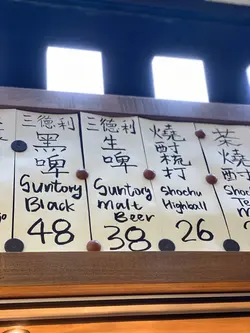 三德利
黑
啤
Suntory
Black
48
三德利
生
啤
Suntory
malt
Beer
38
燒
酎
梳
打
Shochu
Highball
26
茶
燒
酎